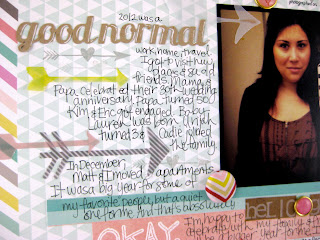 photographed
2012 was a
good normal
work, home, travel.
I got to visit new
places & see old
friends. Mama &
Papa celebrated their 30th wedding
anniversary. Papa turned 50.
Kim & Eric got engaged. Baby
Lauren was born. Uriah
turned 3 & Cadie joined
the family.
In December,
Matt & I moved apartments.
It was a big year for some of
my favorite people, but a quiet
one for me. And that's absolutely
OKAY
her
I'm happy to
celebrate with my family &
year for me. I